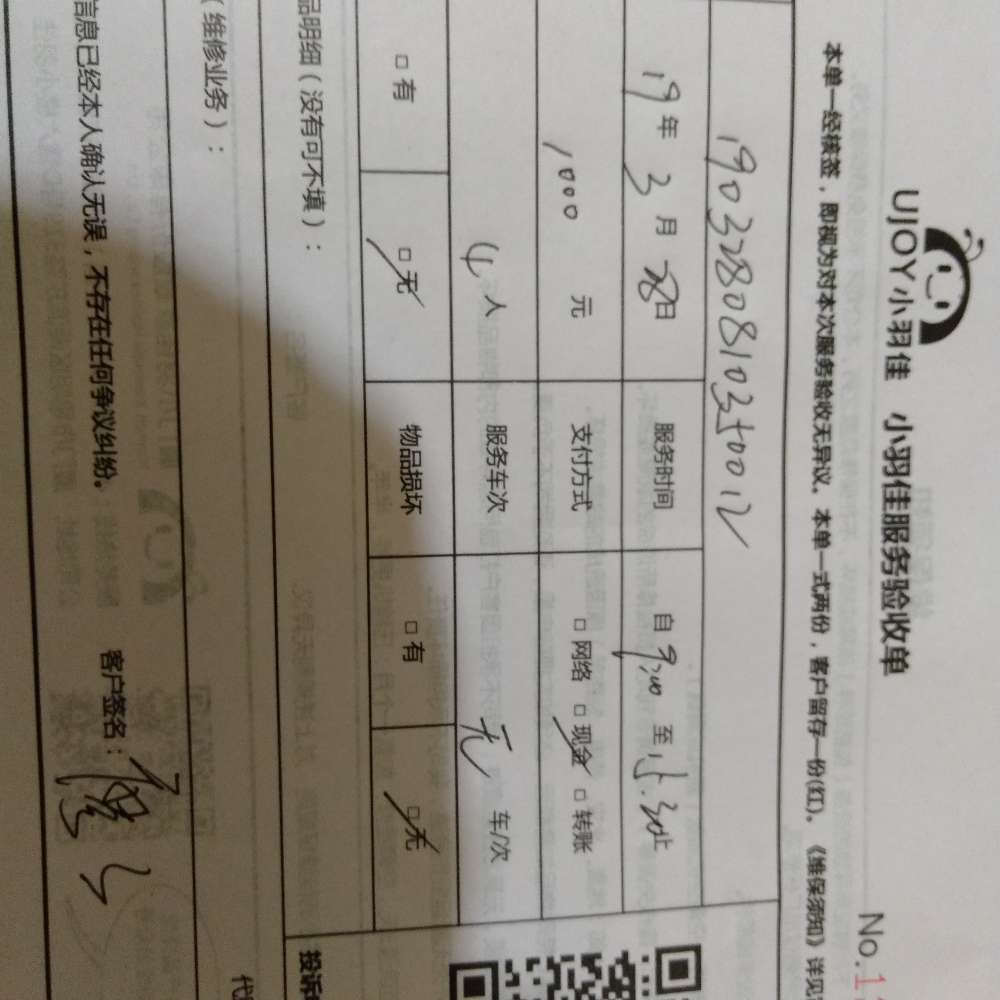 UJOY小羽佳 小羽佳服务验收单
No.1
本单一经核签，即视为对本次服务验收无异议。本单一式两份，客户留存一份(红)。《维保须知》详见
1903280810350012
19年3月28日 服务时间 自9:00至15:30止
1000元 支付方式 □网络 □现金✓ □转账
4人 服务车次 无 车/次
□有 □无✓ 物品损坏 □有 □无✓
品明细（没有可不填）：
投诉
（维修业务）：
信息已经本人确认无误，不存在任何争议纠纷。 客户签名：